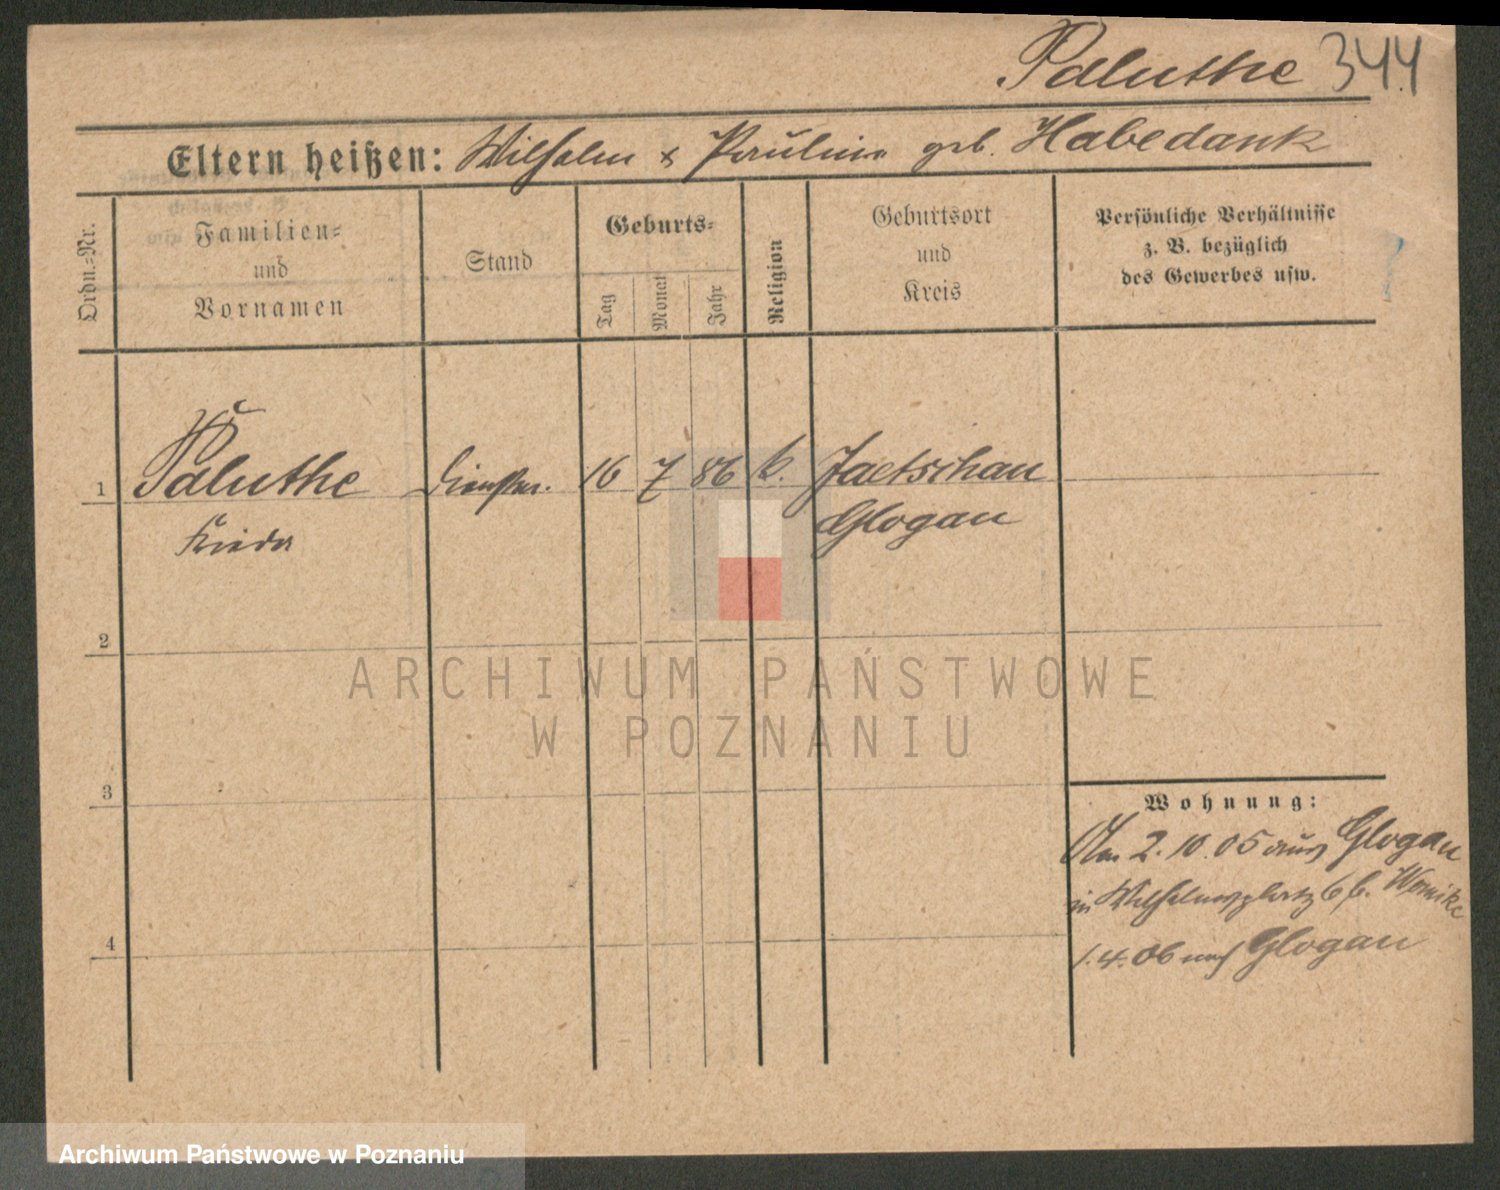 Paluthe 344
Eltern heißen: Wilhelm & Pauline geb. Habedank
Ordn.=Nr.
Familien=
und
Vornamen
Stand
Geburts=
Tag
Monat
Jahr
Religion
Geburtsort
und
Kreis
Persönliche Verhältnisse
z. B. bezüglich
des Gewerbes usw.
1 Paluthe 16 7 86 k. Jaetschau
Frieda Glogau
2
ARCHIWUM PAŃSTWOWE
W POZNANIU
3
Wohnung:
Am 2.10.05 aus Glogau
in Wilhelmsplatz 6 b.
4
1.4.06 nach Glogau
Archiwum Państwowe w Poznaniu